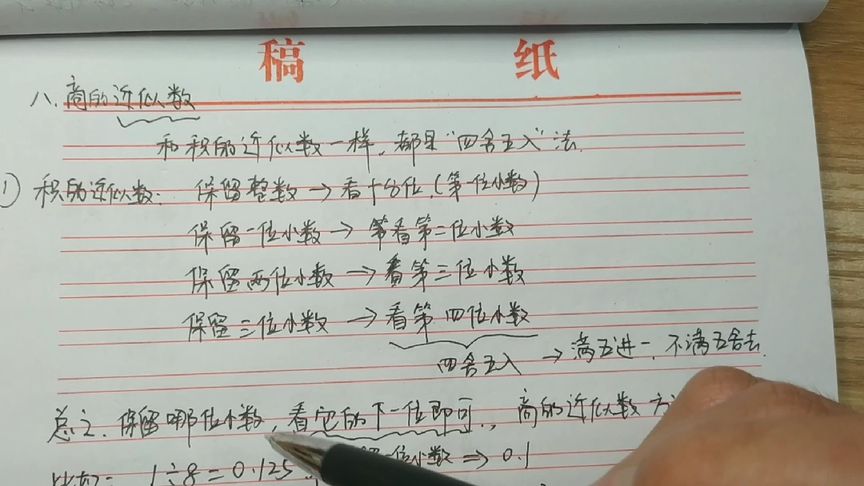 稿 纸
八.商的近似数
和积的近似数一样,都是"四舍五入"法.
① 积的近似数: 保留整数→看十分位.(第一位小数)
保留一位小数→第看第二位小数
保留两位小数→看第三位小数
保留三位小数→看第四位小数
四舍五入 →满五进一.不满五舍去.
总之.保留哪位小数,看它的下一位即可.,商的近似数方
比如: 1÷8=0.125 一位小数⇒0.1